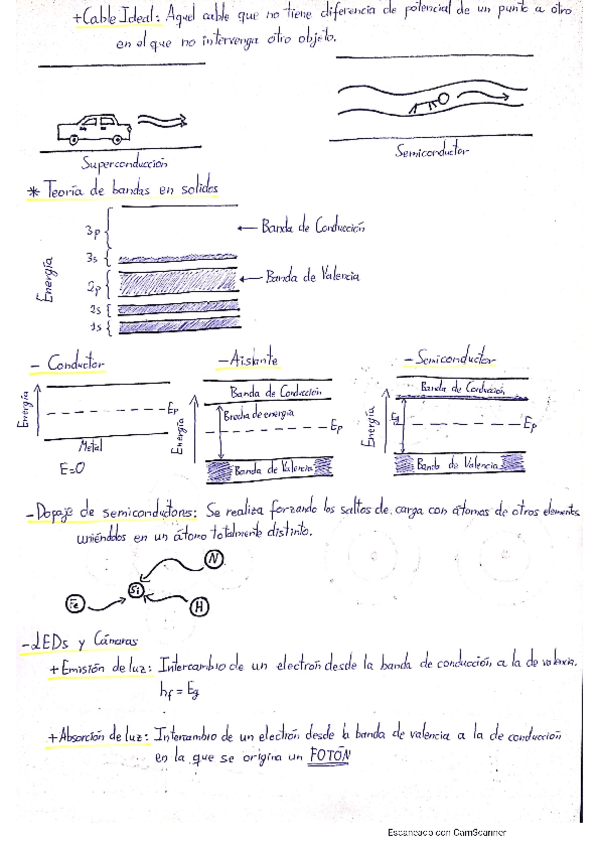 +Cable Ideal: Aquel cable que no tiene diferencia de potencial de un punto a otro
en el que no intervenga otro objeto.
Superconducción
Semiconductor
* Teoría de bandas en solidos
Energía
3p
3s
2p
2s
1s
Banda de Conducción
Banda de Valencia
- Conductor
Energía
EF
Metal
E=0
- Aislante
Energía
Banda de Conducción
Brecha de energía
EF
Banda de Valencia
- Semiconductor
Energía
Banda de Conducción
Eg
EF
Banda de Valencia
- Dopaje de semiconductores: Se realiza forzando los saltos de carga con átomos de otros elementos
uniéndolos en un átomo totalmente distinto.
N
Si
Fe
H
- LEDs y Cámaras
+ Emisión de luz: Intercambio de un electrón desde la banda de conducción a la de valencia.
hf = Eg
+ Absorción de luz: Intercambio de un electrón desde la banda de valencia a la de conducción
en la que se origina un FOTÓN
Escaneado con CamScanner